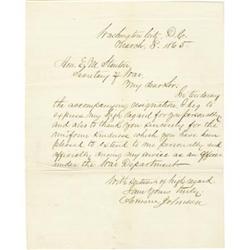 Washington City, D.C.
March, 3, 1865
Hon. E. M. Stanton,
Secretary of War.
My dear Sir.
In tendering
the accompanying resignation I beg to
express my high regard for you personally
and also to thank you sincerely for the
uniform kindness which you have been
pleased to extend to me personally and
officially during my service as an officer
under the War Department.
With sentiments of high regard
I am Yours Truly
Andrew Johnson